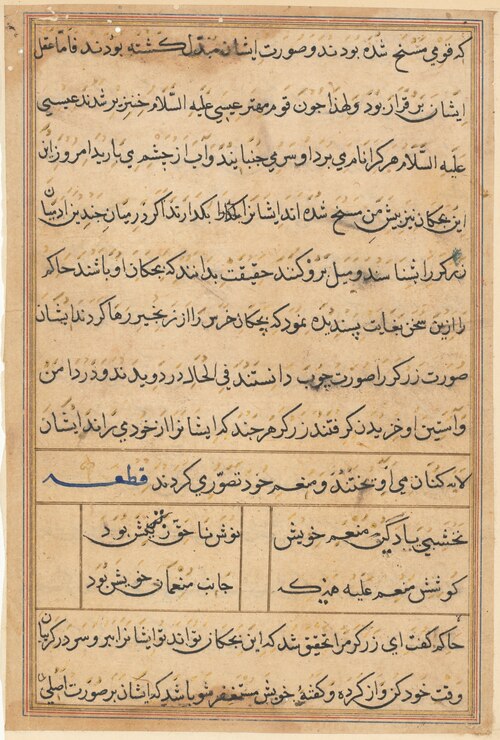 که قومی مسخ شده بودند و صورت ایشان مبدل کشته بودند فاما عقل
ایشان برقرار بود ولهذا چون قوم مهتر عیسی علیه السلام خنزیر شدند عیسی
علیه السلام هر کرا نام می برد او سر می جنبانید و آب از چشم می بارید امروز این
این بچکان نیز پیش من مسخ شده اند ایشانرا بکدارند اکر در میان چندین ادمیان
زرکر را بشناسند و میل برو کنند حقیقت بدانند که بچکان او باشند حاکم
را ازین سخن بغایت پسندیده نمود که بچکان خرس را از زنجیر رها کردند ایشان
صورت زرکر را صورت چوب دانستند فی الحاله در دویدند و در دامن
و آستین او خزیدن کرفتند زرکر هر چند که ایشانرا از خود می راند ایشان
لابه کنان می آویختند و منعم خود تصور می کردند قطعه
نخشبی یاد کن منعم خویش
نوش ناحق بود
کوشش منعم علیه هر که
جانب منعمان خویش بود
حاکم کفت ای زرکر مرا تحقیق شد که این بچکان تواند تو ایشانرا ببر و سر در کریبان
وقت خود کن و از کرده و کفته خویش مستغفر شو باشد که ایشان بر صورت اصلی